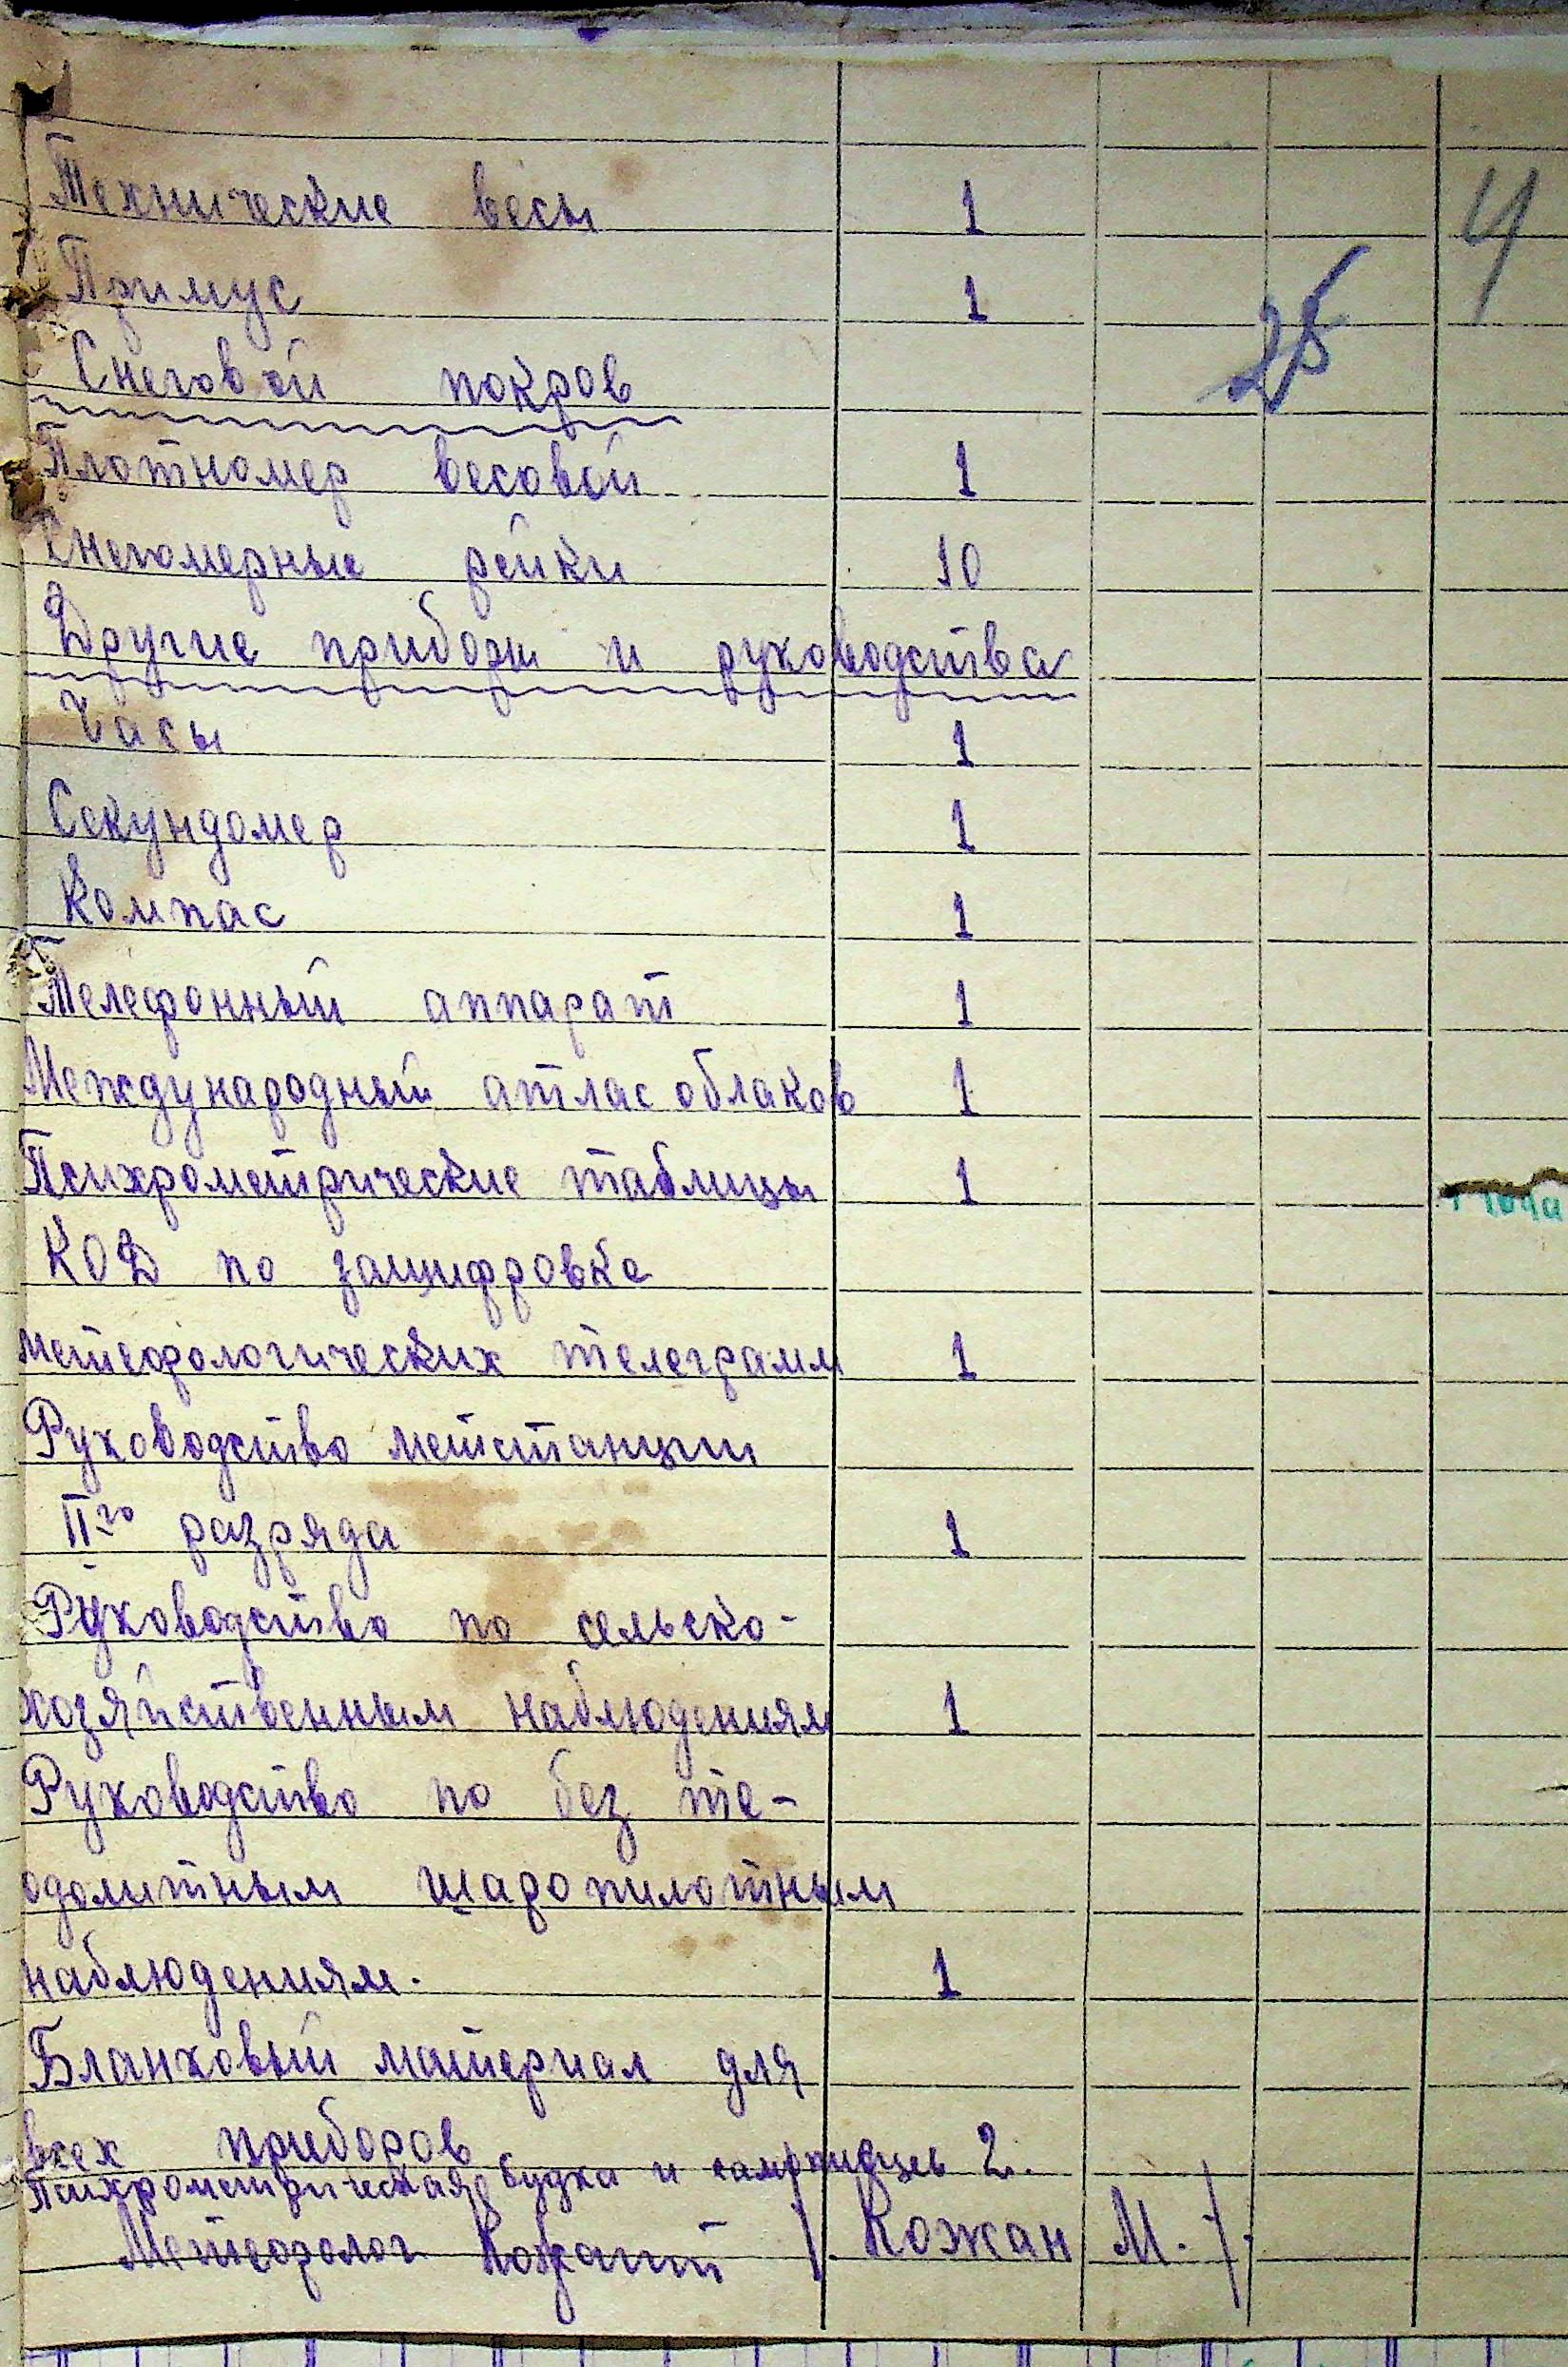 Технические весы 1
4
Примус 1
25
Снеговой покров
Плотномер весовой 1
Снегомерные рейки 10
Другие приборы и руководства
Часы 1
Секундомер 1
Компас 1
Телефонный аппарат 1
Международный атлас облаков 1
Психрометрические таблицы 1
КОД по зашифровке
метеорологических телеграмм 1
Руководство метстанции
II го разряда 1
Руководство по сельско-
хозяйственным наблюдениям 1
Руководство по без те-
одолитным шаропилотным
наблюдениям. 1
Бланковый материал для
всех приборов
Психрометрическая будка и самописцев 2.
Метеоролог / Кожан М. /.